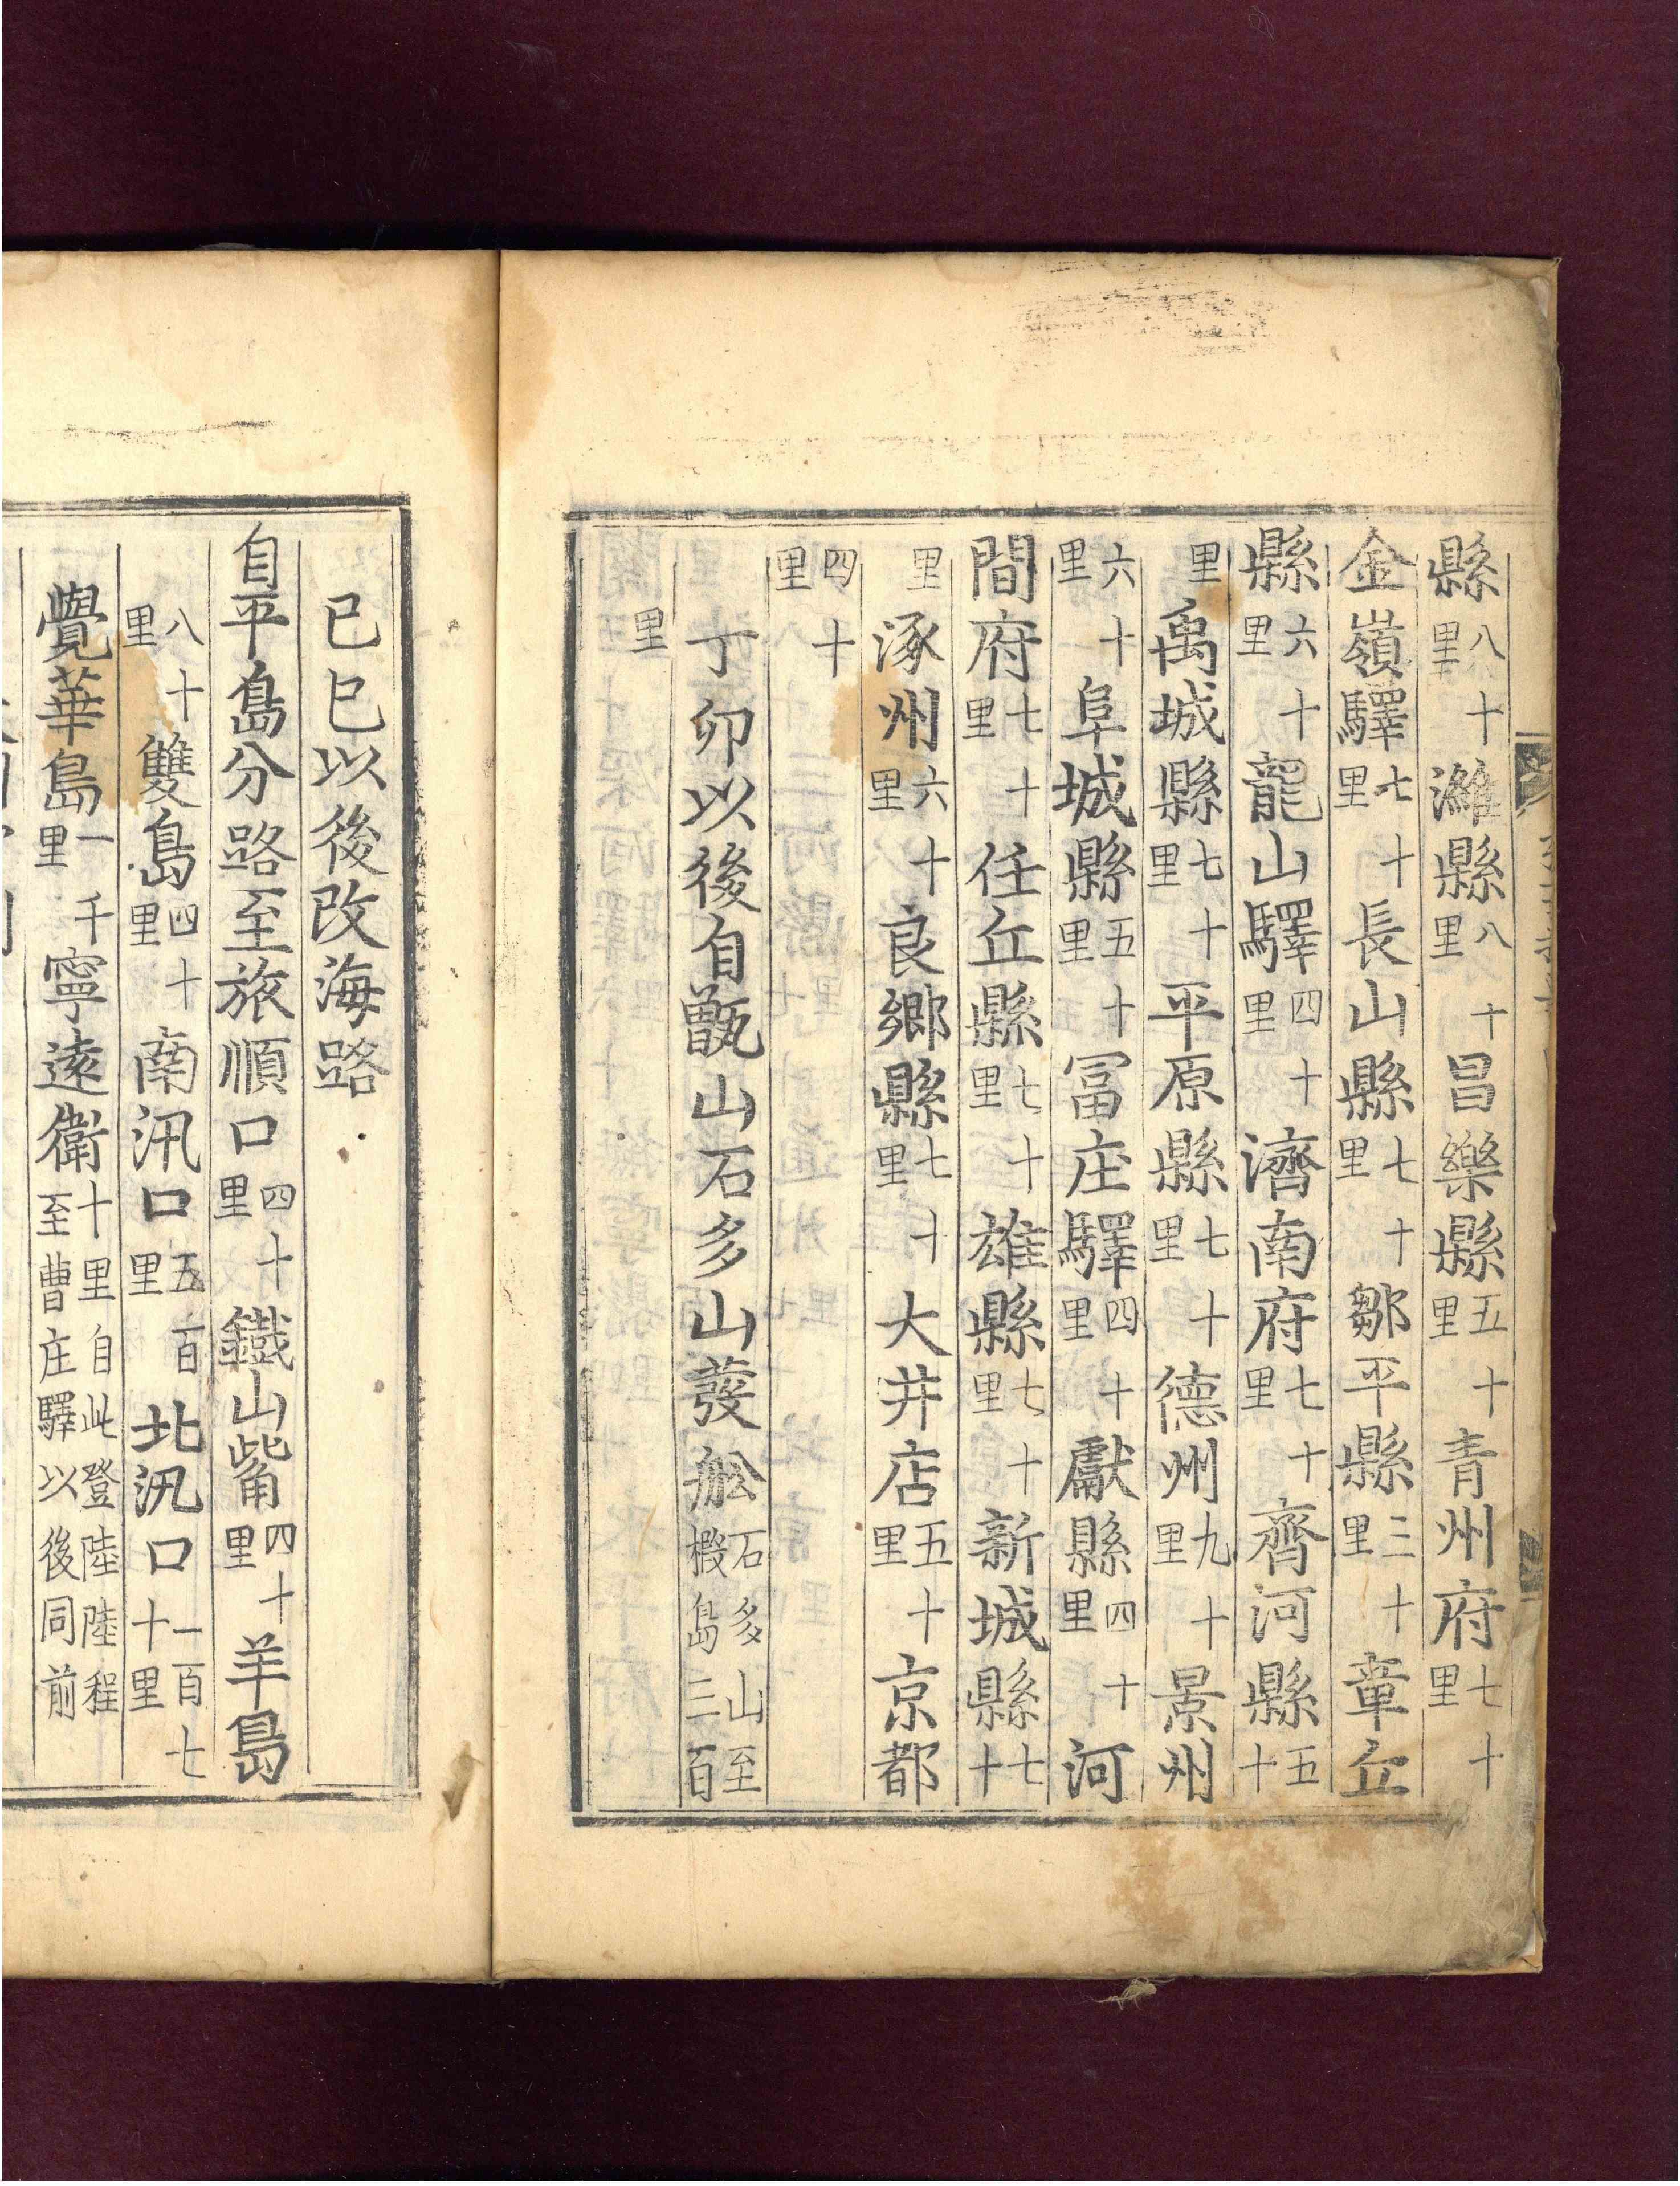 縣八十里濰縣八十里昌樂縣五十里青州府七十里
金嶺驛七十里長山縣七十里鄒平縣三十里章丘
縣六十里龍山驛四十里濟南府七十里齊河縣五十
里禹城縣七十里平原縣七十里德州九十里景州
六十里阜城縣五十里冨庄驛四十里獻縣四十里河
間府七十里任丘縣七十里雄縣七十里新城縣七十
里涿州六十里良鄉縣七十里大井店五十里京都
四十里
丁卯以後自甑山石多山蕟舩石多山至椵島三百
里
己巳以後改海路
自平島分路至旅順口四十里鐵山觜四十里羊島
八十里雙島四十里南汛口五百里北汛口一百七十里
覺華島一千里寧遠衛十里自此登陸陸程至曹庄驛以後同前